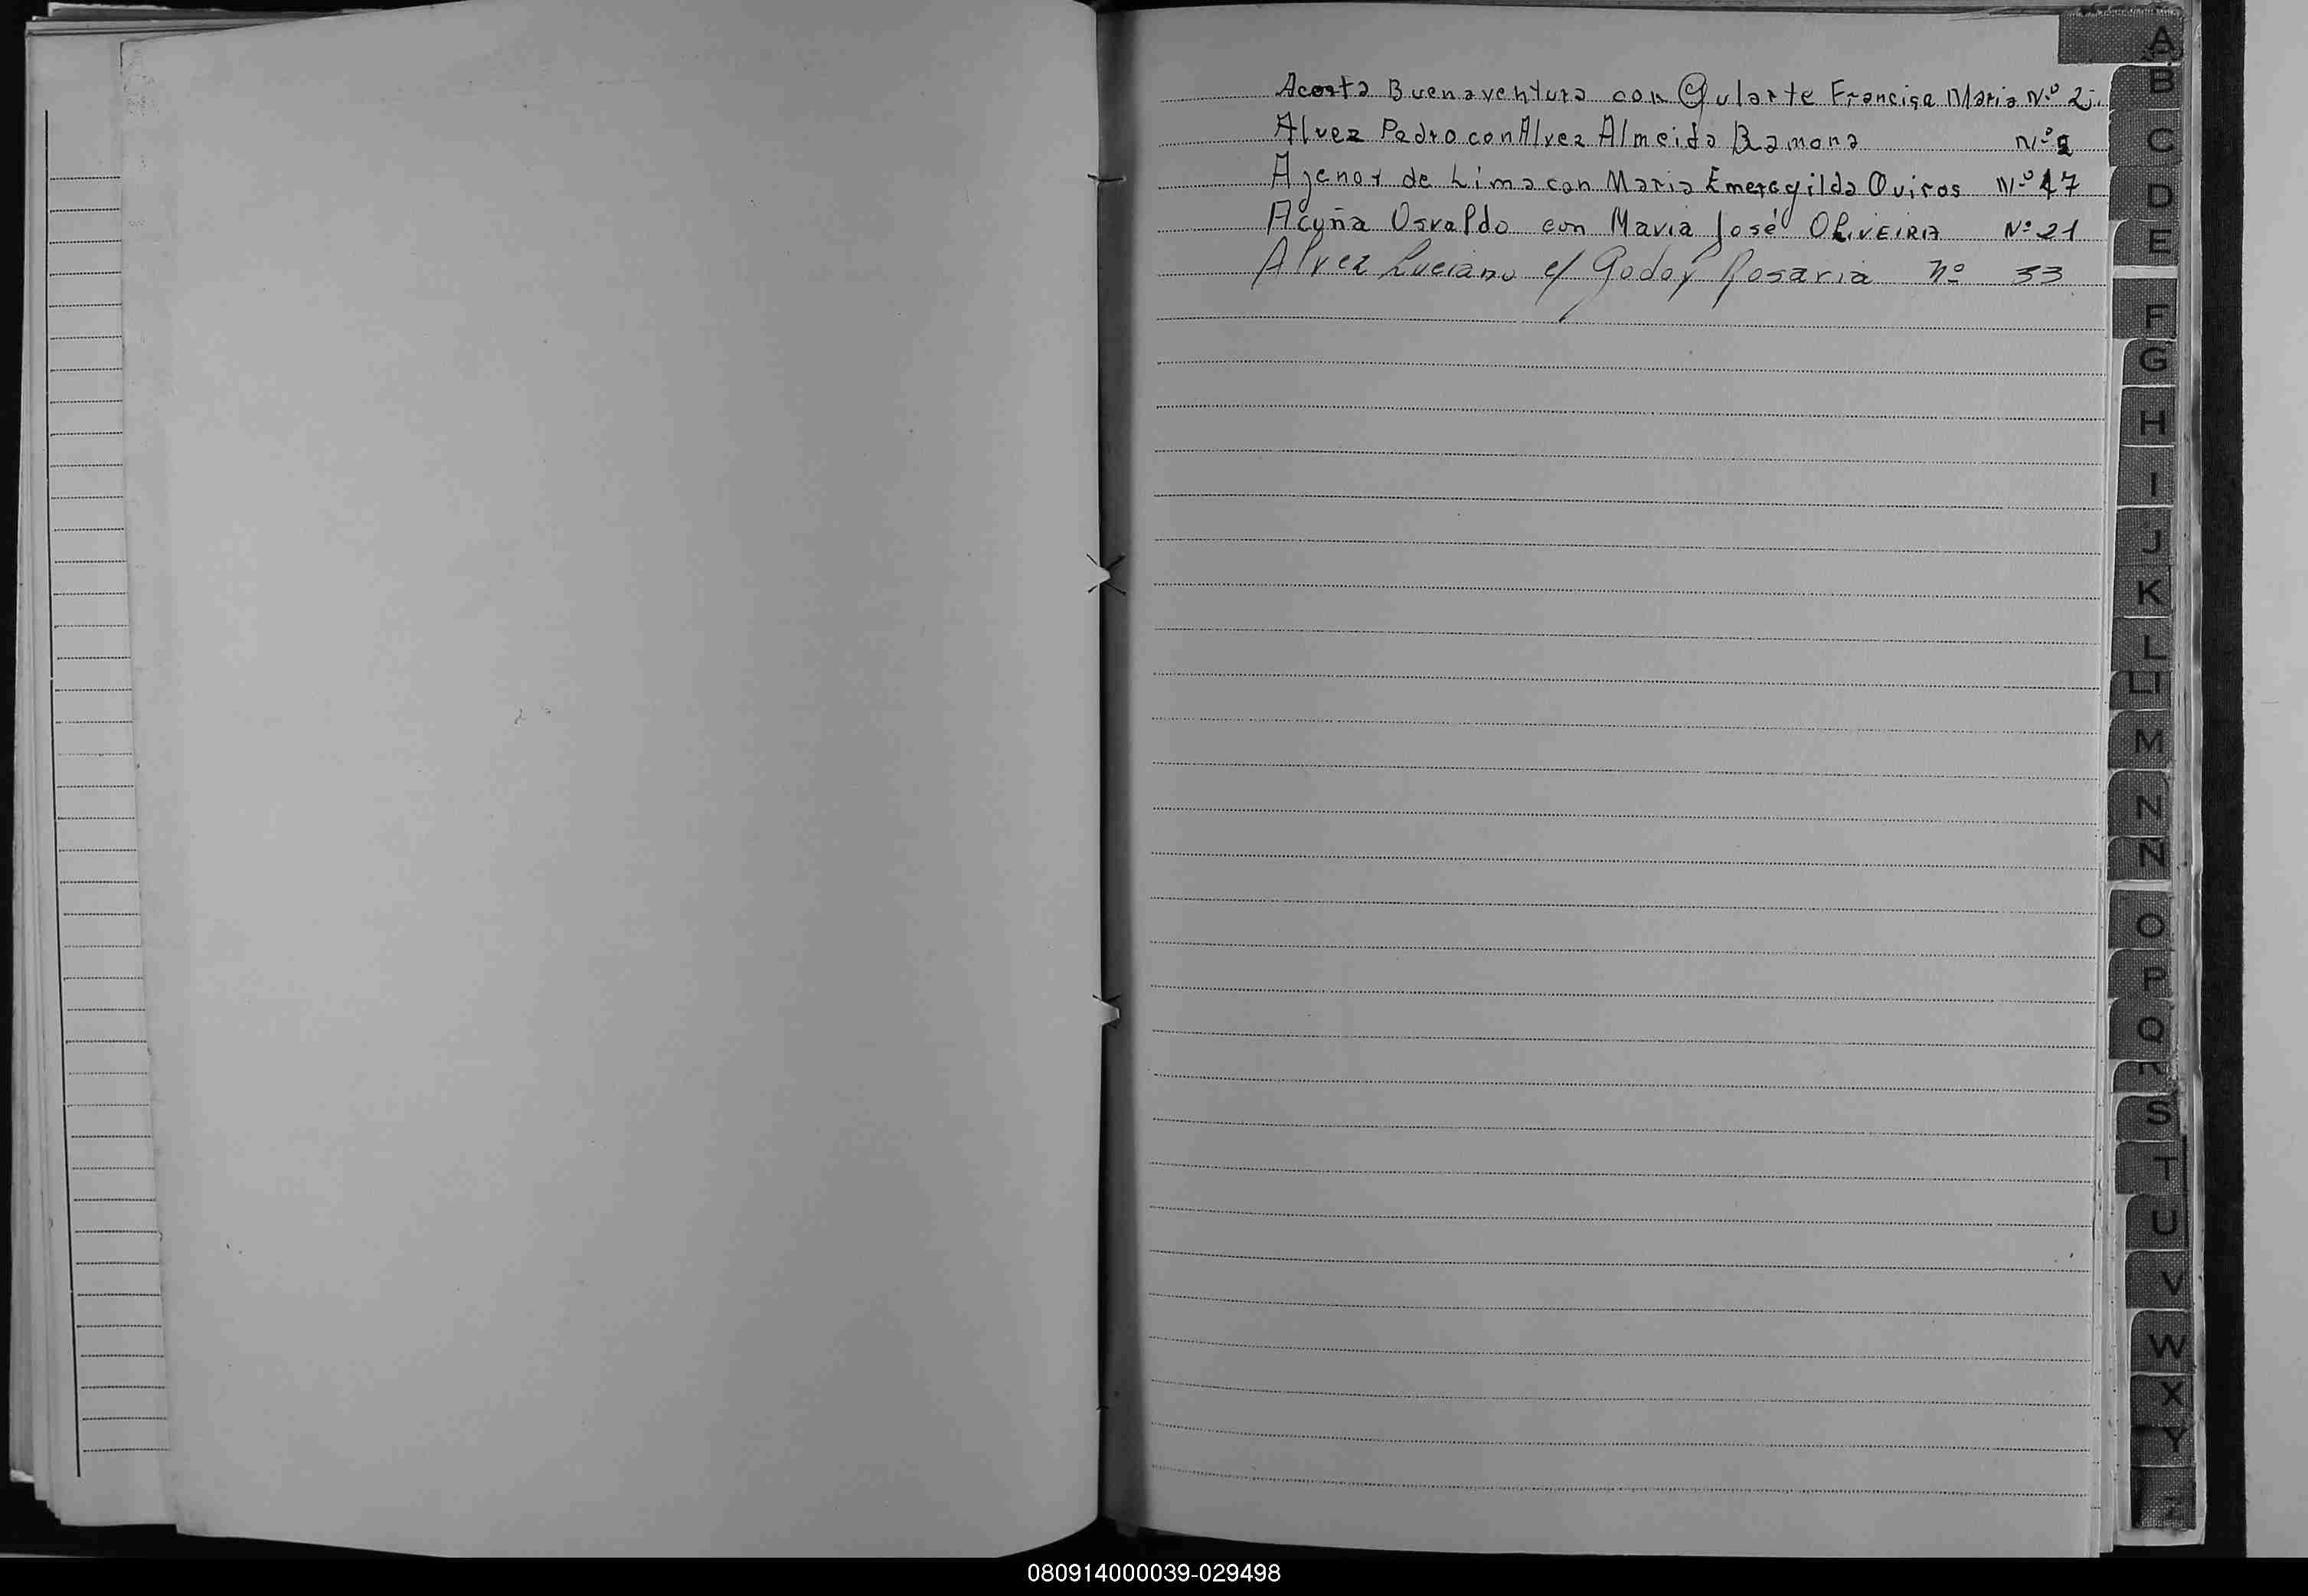 Acosta Buenaventura con Gularte Francisca Maria Nº 2
Alvez Pedro con Alvez Almeida Ramona Nº
Agenor de Lima con Maria Emeregilda Quiros Nº 17
Acuña Osvaldo con Maria José OLIVEIRA Nº 21
Alvez Luciano c/ Godoy Rosaria Nº 33
A
B
C
D
E
F
G
H
I
J
K
L
LL
M
N
Ñ
O
P
Q
R
S
T
U
V
W
X
Y
Z
080914000039-029498